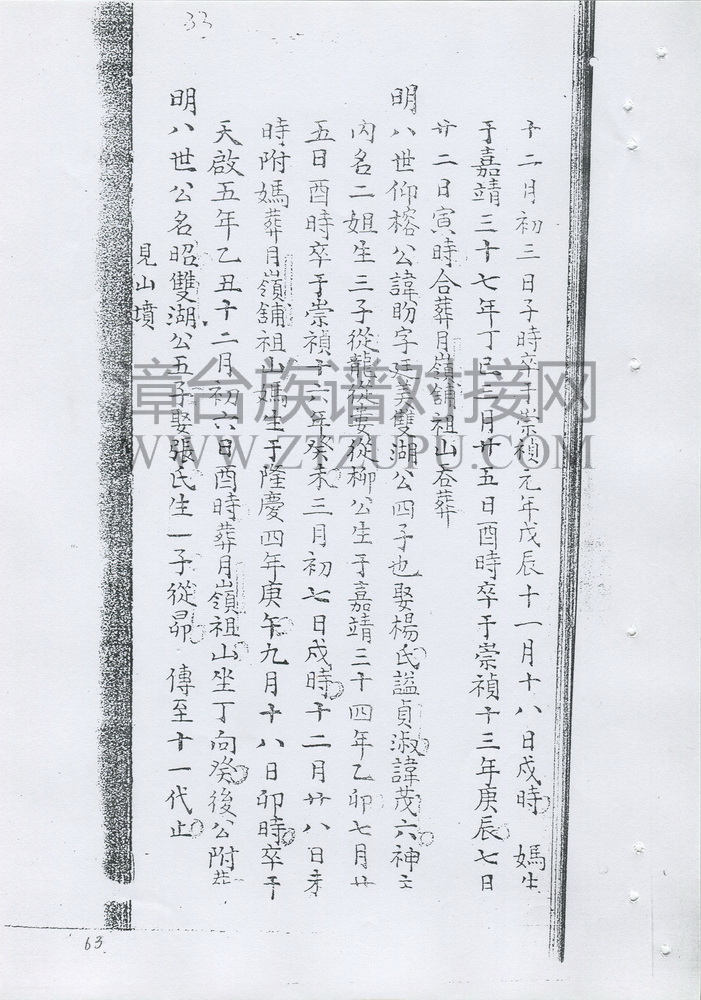 33
十二月初三日子時卒于崇禎元年戊辰十一月十八日戍時 媽生
于嘉靖三十七年丁巳三月廿五日酉時卒于崇禎十三年庚辰七日
廿二日寅時合葬月嶺舖祖山吞葬
明八世仰榕公諱盼字廷美雙湖公四子也娶楊氏謚貞淑諱茂六神主
內名二姐生三子從龍從妻從柳公生于嘉靖三十四年乙卯七月廿
五日酉時卒于崇禎十六年癸未三月初七日戍時十二月廿八日未
時附媽葬月嶺舖祖山媽生于隆慶四年庚午九月十八日卯時卒于
天啟五年乙丑十二月初六日酉時葬月嶺祖山坐丁向癸後公附葬
明八世公名昭雙湖公五子娶張氏生一子從昴 傳至十一代止
見山墳
章台族谱对接网
WWW.ZTZUPU.COM
63